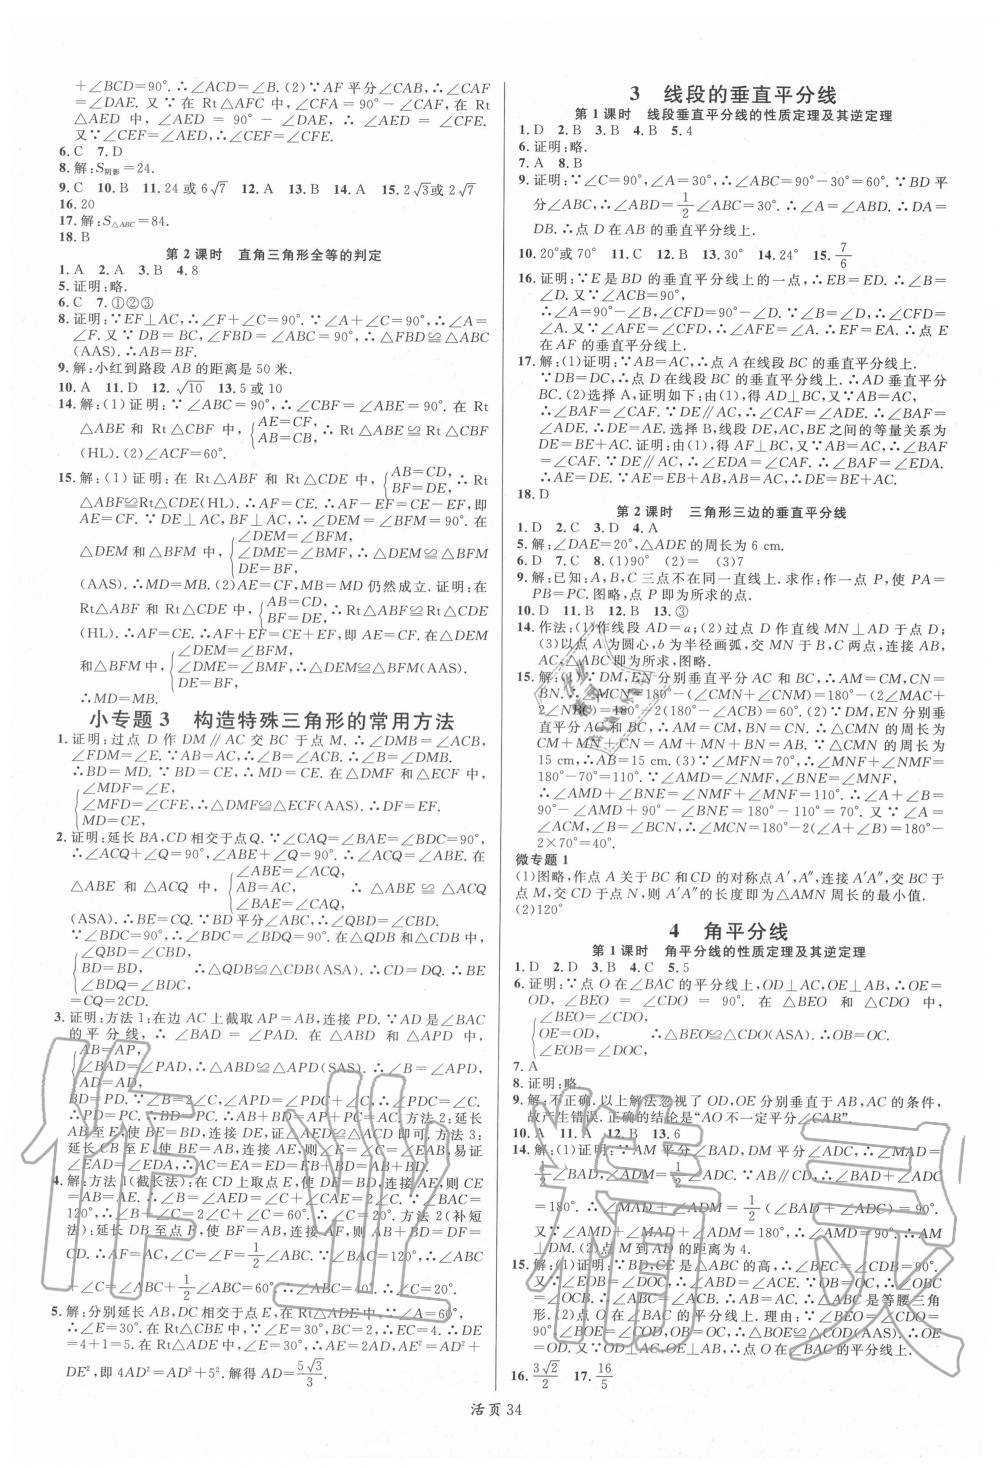 +∠BCD=90°.∴∠ACD=∠B.(2)∵AF平分∠CAB,∴∠CAF
=∠DAE.又∵在Rt△AFC中,∠CFA=90°-∠CAF,在Rt
△AED中,∠AED=90°-∠DAE,∴∠AED=∠CFE.
又∵∠CEF=∠AED,∴∠CEF=∠CFE.
6.C 7.D
8.解:S阴影=24.
9.C 10.B 11.24或6√7 12.A 13.B 14.A 15.2√3或2√7
16.20
17.解:S△ABC=84.
18.B
第2课时 直角三角形全等的判定
1.A 2.A 3.B 4.8
5.证明:略.
6.C 7.①②③
8.证明:∵EF⊥AC,∴∠F+∠C=90°.∵∠A+∠C=90°,∴∠A=
∠F.又∵DB=BC,∠FBD=∠ABC,∴△FBD≌△ABC
(AAS).∴AB=BF.
9.解:小红到路段AB的距离是50米.
10.A 11.D 12.√10 13.5或10
14.解:(1)证明:∵∠ABC=90°,∴∠CBF=∠ABE=90°.在Rt
△ABE和Rt△CBF中,{AE=CF, AB=CB,∴Rt△ABE≌Rt△CBF
(HL).(2)∠ACF=60°.
15.解:(1)证明:在Rt△ABF和Rt△CDE中,{AB=CD, BF=DE,∴Rt
△ABF≌Rt△CDE(HL).∴AF=CE.∴AF-EF=CE-EF,即
AE=CF.∵DE⊥AC,BF⊥AC,∴∠DEM=∠BFM.在
△DEM和△BFM中,{∠DEM=∠BFM, ∠DME=∠BMF, DE=BF, ∴△DEM≌△BFM
(AAS).∴MD=MB.(2)AE=CF,MB=MD仍然成立.证明:在
Rt△ABF和Rt△CDE中,{AB=CD, BF=DE,∴Rt△ABF≌Rt△CDE
(HL).∴AF=CE.∴AF+EF=CE+EF,即AE=CF.在△DEM
和△BFM中,{∠DEM=∠BFM, ∠DME=∠BMF, DE=BF, ∴△DEM≌△BFM(AAS).
∴MD=MB.
小专题3 构造特殊三角形的常用方法
1.证明:过点D作DM∥AC交BC于点M.∴∠DMB=∠ACB,
∠FDM=∠E.∵AB=AC,∴∠B=∠ACB.∴∠B=∠DMB.
∴BD=MD.∵BD=CE,∴MD=CE.在△DMF和△ECF中,
{∠MDF=∠E, ∠MFD=∠CFE, MD=CE, ∴△DMF≌△ECF(AAS).∴DF=EF.
2.证明:延长BA,CD相交于点Q.∵∠CAQ=∠BAE=∠BDC=90°,
∴∠ACQ+∠Q=90°,∠ABE+∠Q=90°.∴∠ACQ=∠ABE.在
△ABE和△ACQ中,{∠ABE=∠ACQ, AB=AC, ∠BAE=∠CAQ, ∴△ABE≌△ACQ
(ASA).∴BE=CQ.∵BD平分∠ABC,∴∠QBD=∠CBD.
∵∠BDC=90°,∴∠BDQ=90°.在△QDB和△CDB中,
{∠QBD=∠CBD, BD=BD, ∠BDQ=∠BDC, ∴△QDB≌△CDB(ASA).∴CD=DQ.∴BE
=CQ=2CD.
3.证明:方法1:在边AC上截取AP=AB,连接PD.∵AD是∠BAC
的平分线,∴∠BAD=∠PAD.在△ABD和△APD中,
{AB=AP, ∠BAD=∠PAD, AD=AD, ∴△ABD≌△APD(SAS).∴∠APD=∠B,
BD=PD.
AB至E使BE=BD,连接DE,证△ADE≌△ADC即可.方法3:
延长CB至E使BE=AB,连接AE,则∠E=∠EAB,易证
∠EAD=∠EDA,∴AC=EA=ED=EB+BD=AB+BD.
4.解:方法1(截长法):在CD上取点E,使DE=BD,连接AE,则CE
=AB=AE,∴∠B=∠AED=∠C+∠CAE=2∠C.∵∠BAC=
120°,∴∠B+∠C=60°,∴∠C=20°.方法2(补短
法):延长DB至点F,使BF=AB,连接AF,则AB+BD=DF=
CD,∴AF=AC,∠C=∠F=1/2∠ABC.∵∠BAC=120°,∴∠ABC
+∠C=∠ABC+1/2∠ABC=60°.∴∠ABC=40°.∴∠C=20°.
5.解:分别延长AB,DC相交于点E,在Rt△ADE中,∵∠A=60°,
∴∠E=30°.在Rt△CBE中,∵∠E=30°,BC=2,∴EC=4,∴DE
=4+1=5.在Rt△ADE中,∠E=30°,∴AE=2AD,AE²=AD²+
DE²,即4AD²=AD²+5².解得AD=5√3/3.
3 线段的垂直平分线
第1课时 线段垂直平分线的性质定理及其逆定理
1.D 2.B 3.B 4.B 5.4
6.证明:略.
7.A 8.B
9.证明:∵∠C=90°,∠A=30°,∴∠ABC=90°-30°=60°.∵BD平
分∠ABC,∴∠ABD=1/2∠ABC=30°.∴∠A=∠ABD.∴DA=
DB.∴点D在AB的垂直平分线上.
10.20°或70° 11.C 12.B 13.30° 14.24° 15.7/6
16.证明:∵E是BD的垂直平分线上的一点,∴EB=ED.∴∠B=
∠D.又∵∠ACB=90°,
∴∠A=90°-∠B,∠CFD=90°-∠D.∵∠B=∠D,∴∠CFD=
∠A.又∵∠AFE=∠CFD,∴∠AFE=∠A.∴EF=EA.∴点E
在AF的垂直平分线上.
17.解:(1)证明:∵AB=AC,∴点A在线段BC的垂直平分线上.
∵DB=DC,∴点D在线段BC的垂直平分线上.∴AD垂直平分
BC.(2)选择A,证明如下:由(1),得AD⊥BC,又∵AB=AC,
∴∠BAF=∠CAF.∵DE∥AC,∴∠CAF=∠ADE.∴∠BAF=
∠ADE.∴DE=AE.选择B,线段DE,AC,BE之间的等量关系为
DE=BE+AC.证明:由(1),得AF⊥BC.又∵AB=AC,
∴∠BAF=∠CAF.∵DE∥AC,∴∠CAF=∠ADE.∴∠BAF=∠ADE.
∴DE=AE.∵AE=EB+AB,AB=AC,∴DE=BE+AC.
18.D
第2课时 三角形三边的垂直平分线
1.D 2.D 3.D 4.A
5.解:∠DAE=20°,△ADE的周长为6 cm.
6.D 7.C 8.(1)90° (2)= (3)7
9.解:已知:A,B,C三点不在同一直线上.求作:作一点P,使PA=
PB=PC.图略,点P即为所求的点.
10.D 11.B 12.B 13.③
14.作法:(1)作线段AD=a;(2)过点D作直线MN⊥AD于点D;
(3)以点A为圆心,b为半径画弧,交MN于B,C两点,连接AB,
AC,△ABC即为所求,图略.
15.解:(1)∵DM,EN分别垂直平分AC和BC,∴AM=CM,CN=
BN.∴∠MCN=180°-(∠CMN+∠CNM)=180°-(2∠MAC+
2∠NBC)=180°-2(∠MAC+∠NBC).∵DM,EN分别垂直
平分AC和BC,∴AM=CM,BN=CN.∴△CMN的周长为
CM+MN+CN=AM+MN+BN=AB.∵△CMN的周长为
15 cm,∴AB=15 cm.(2)∵∠MFN=70°,∴∠MNF+∠NMF=
180°-70°=110°.∵∠AMD=∠NMF,∠BNE=∠MNF,
∴∠AMD+∠BNE=∠NMF+∠MNF=110°.∴∠A+∠B=
90°-∠AMD+90°-∠BNE=180°-110°=70°.又∵∠A=
∠ACM,∠B=∠BCN,∴∠MCN=180°-2(∠A+∠B)=180°-
2×70°=40°.
微专题1
(1)图略,作点A关于BC和CD的对称点A′,A″,连接A′A″,交BC于
点M,交CD于点N,则A′A″的长度即为△AMN周长的最小值.
(2)120°
4 角平分线
第1课时 角平分线的性质定理及其逆定理
1.D 2.D 3.B 4.C 5.5
6.证明:∵点O在∠BAC的平分线上,OD⊥AC,OE⊥AB,∴OE=
OD,∠BEO=∠CDO=90°.在△BEO和△CDO中,
{∠BEO=∠CDO, OE=OD, ∠EOB=∠DOC, ∴△BEO≌△CDO(ASA).∴OB=OC.
7.A
8.证明:略.
9.解:不正确.以上解法忽视了OD,OE分别垂直于AB,AC的条件,
故产生错误.正确的结论是“AO不一定平分∠CAB”.
10.A 11.A 12.B 13.6
14.解:(1)证明:∵AM平分∠BAD,DM平分∠ADC,∴∠MAD=
1/2∠BAD,∠ADM=1/2∠ADC.∵AB∥CD,∴∠BAD+∠ADC
=180°.∴∠MAD+∠ADM=1/2(∠BAD+∠ADC)=90°.
又∵∠AMD+∠MAD+∠ADM=180°,∴∠AMD=90°.
∴AM⊥DM.(2)点M到AD的距离为4.
15.解:(1)证明:∵BD,CE是△ABC的高,∴∠BEC=∠CDB=90°.
∠OCB.∴∠ABC=∠ACB.∴AB=AC.∴△ABC是等腰三角
形.(2)点O在∠BAC的平分线上.理由:∵∠BEO=∠CDO=
OD.∴点O在∠BAC的平分线上.
16.3√2/2 17.16/5
活页34